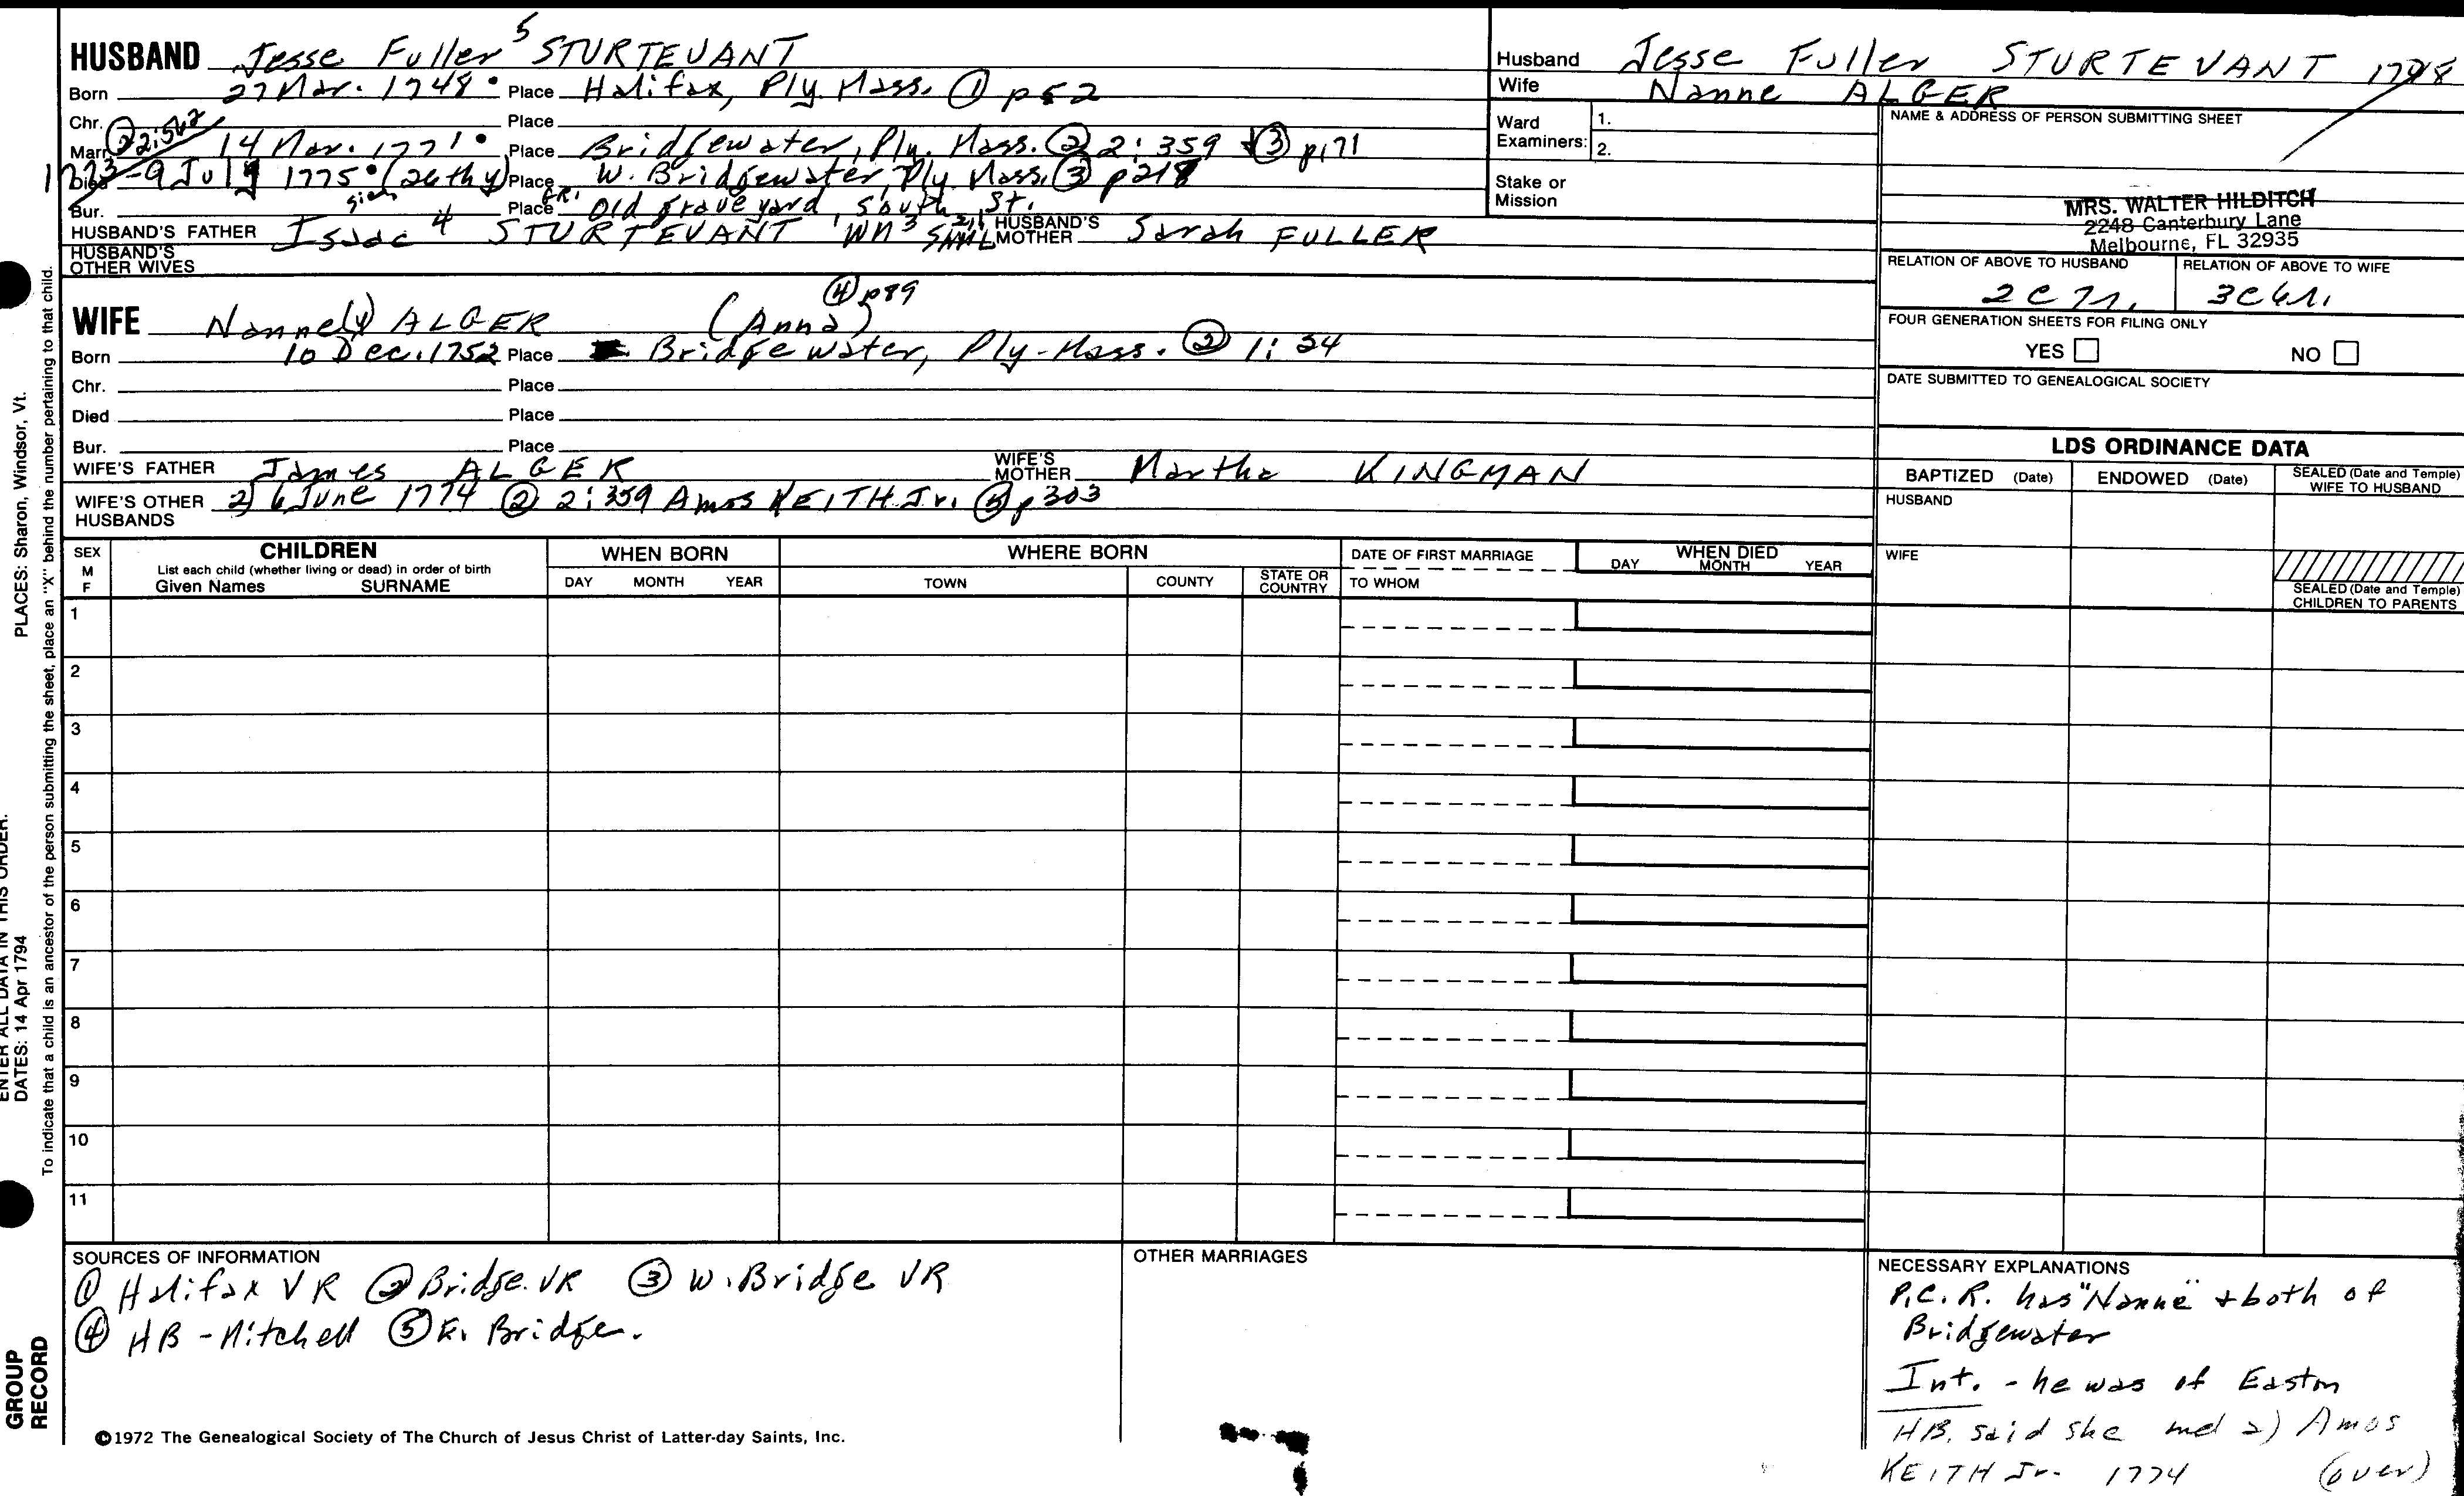 HUSBAND Jesse Fuller 5 STURTEVANT
Born 27 Mar. 1748 Place Halifax, Ply Mass. ① p 52
Chr. Place
Marr. 14 Mar. 1771 Place Bridgewater, Ply. Mass. ② 2: 359 & ③ p171
1773 Died 9 July 1775 (26th y) Place W. Bridgewater, Ply Mass. ③ p 218
Bur. Place G.R. Old graveyard, South St.
HUSBAND'S FATHER Isaac 4 STURTEVANT Wm 3 HUSBAND'S MOTHER Sarah FULLER
HUSBAND'S OTHER WIVES
④ p89
WIFE Nanne(y) ALGER (Anna)
Born 10 Dec. 1752 Place Bridgewater, Ply-Mass. ② 1: 24
Chr. Place
Died Place
Bur. Place
WIFE'S FATHER James ALGER WIFE'S MOTHER Martha KINGMAN
WIFE'S OTHER HUSBANDS 2) 6 June 1774 ② 2: 359 Amos KEITH Jr. ⑤ p 303
Husband Jesse Fuller STURTEVANT 1748
Wife Nanne ALGER
Ward Examiners: 1.
2.
Stake or Mission
NAME & ADDRESS OF PERSON SUBMITTING SHEET
MRS. WALTER HILDITCH
2248 Canterbury Lane
Melbourne, FL 32935
RELATION OF ABOVE TO HUSBAND RELATION OF ABOVE TO WIFE
2C 7r. 3C 6r.
FOUR GENERATION SHEETS FOR FILING ONLY
YES NO
DATE SUBMITTED TO GENEALOGICAL SOCIETY
LDS ORDINANCE DATA
BAPTIZED (Date) ENDOWED (Date) SEALED (Date and Temple) WIFE TO HUSBAND
HUSBAND
WIFE
SEALED (Date and Temple) CHILDREN TO PARENTS
SEX M F
CHILDREN
List each child (whether living or dead) in order of birth
Given Names SURNAME
WHEN BORN
DAY MONTH YEAR
WHERE BORN
TOWN COUNTY STATE OR COUNTRY
DATE OF FIRST MARRIAGE
TO WHOM
WHEN DIED
DAY MONTH YEAR
1
2
3
4
5
6
7
8
9
10
11
SOURCES OF INFORMATION
① Halifax VR ② Bridge. VR ③ W. Bridge VR
④ HB - Mitchell ⑤ E. Bridge.
OTHER MARRIAGES
NECESSARY EXPLANATIONS
P.C.R. has "Nanne" & both of
Bridgewater
Int. - he was of Easton
HB. said she md 2) Amos
KEITH Jr. 1774 (over)
©1972 The Genealogical Society of The Church of Jesus Christ of Latter-day Saints, Inc.
PLACES: Sharon, Windsor, Vt.
ENTER ALL DATA IN THIS ORDER:
DATES: 14 Apr 1794
To indicate that a child is an ancestor of the person submitting the sheet, place an "X" behind the number pertaining to that child.
GROUP
RECORD